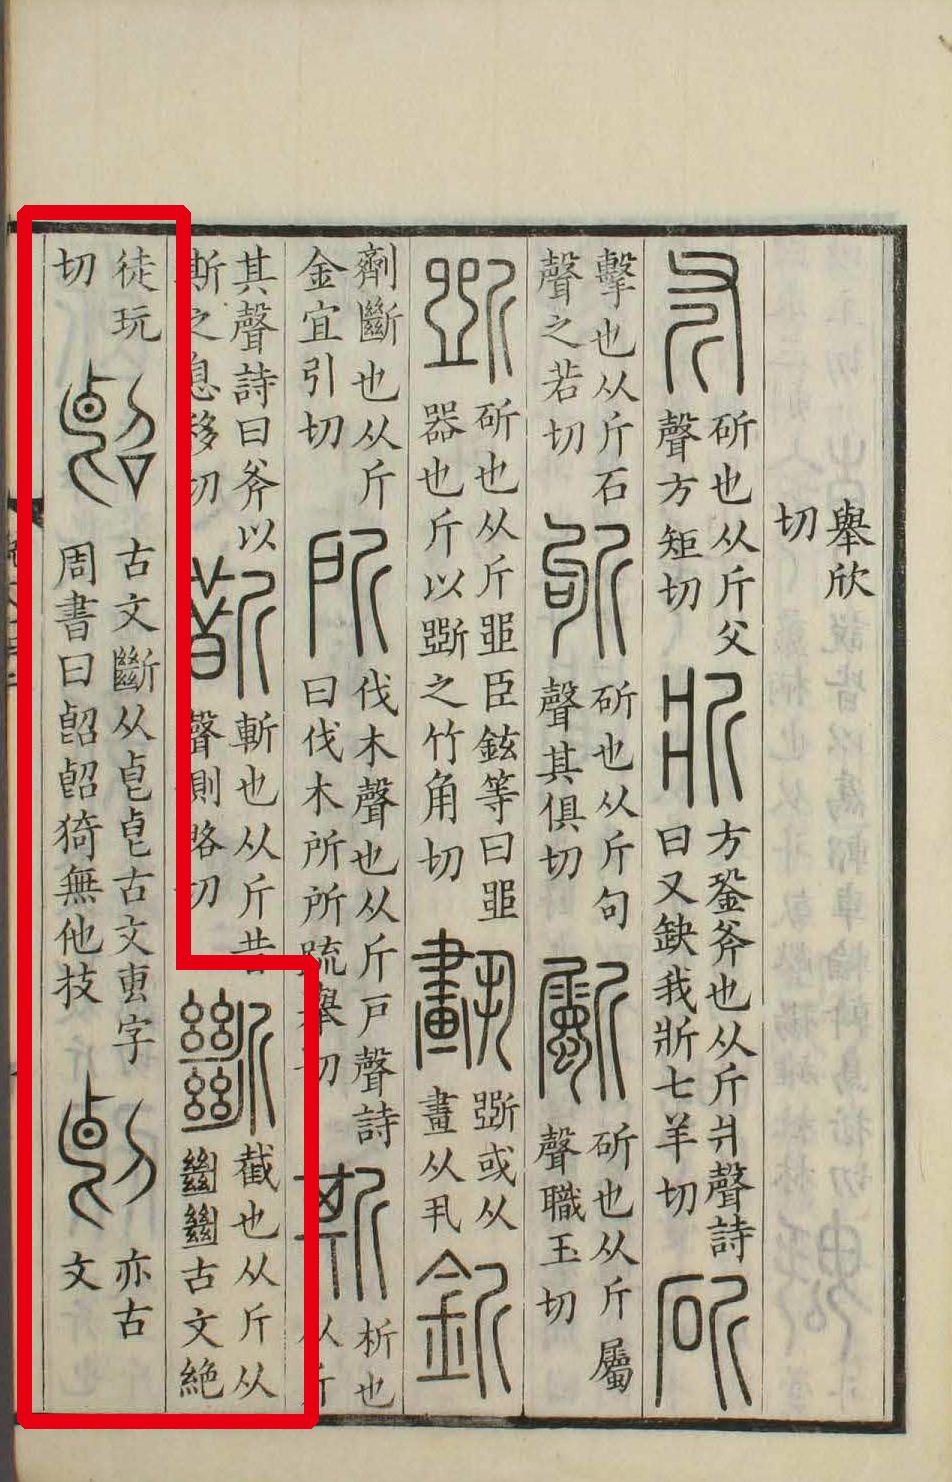 舉欣切
斧斫也从斤父聲方矩切斨方銎斧也从斤爿聲詩曰又缺我斨七羊切斫
擊也从斤石聲之若切斪斫也从斤句聲其俱切斸斫也从斤屬聲職玉切
斲斫也从斤㔁臣鉉等曰㔁器也斤以斲之竹角切𣃈斲或从畫从丮釿
劑斷也从斤金宜引切所伐木聲也从斤戶聲詩曰伐木所所疏舉切斯析也从斤
其聲詩曰斧以斯之息移切斮斬也从斤昔聲側略切斷截也从斤从𢇍𢇍古文絕
徒玩切𠸿古文斷从𠧢𠧢古文叀字周書曰𠸿𠸿猗無他技𠜷亦古文